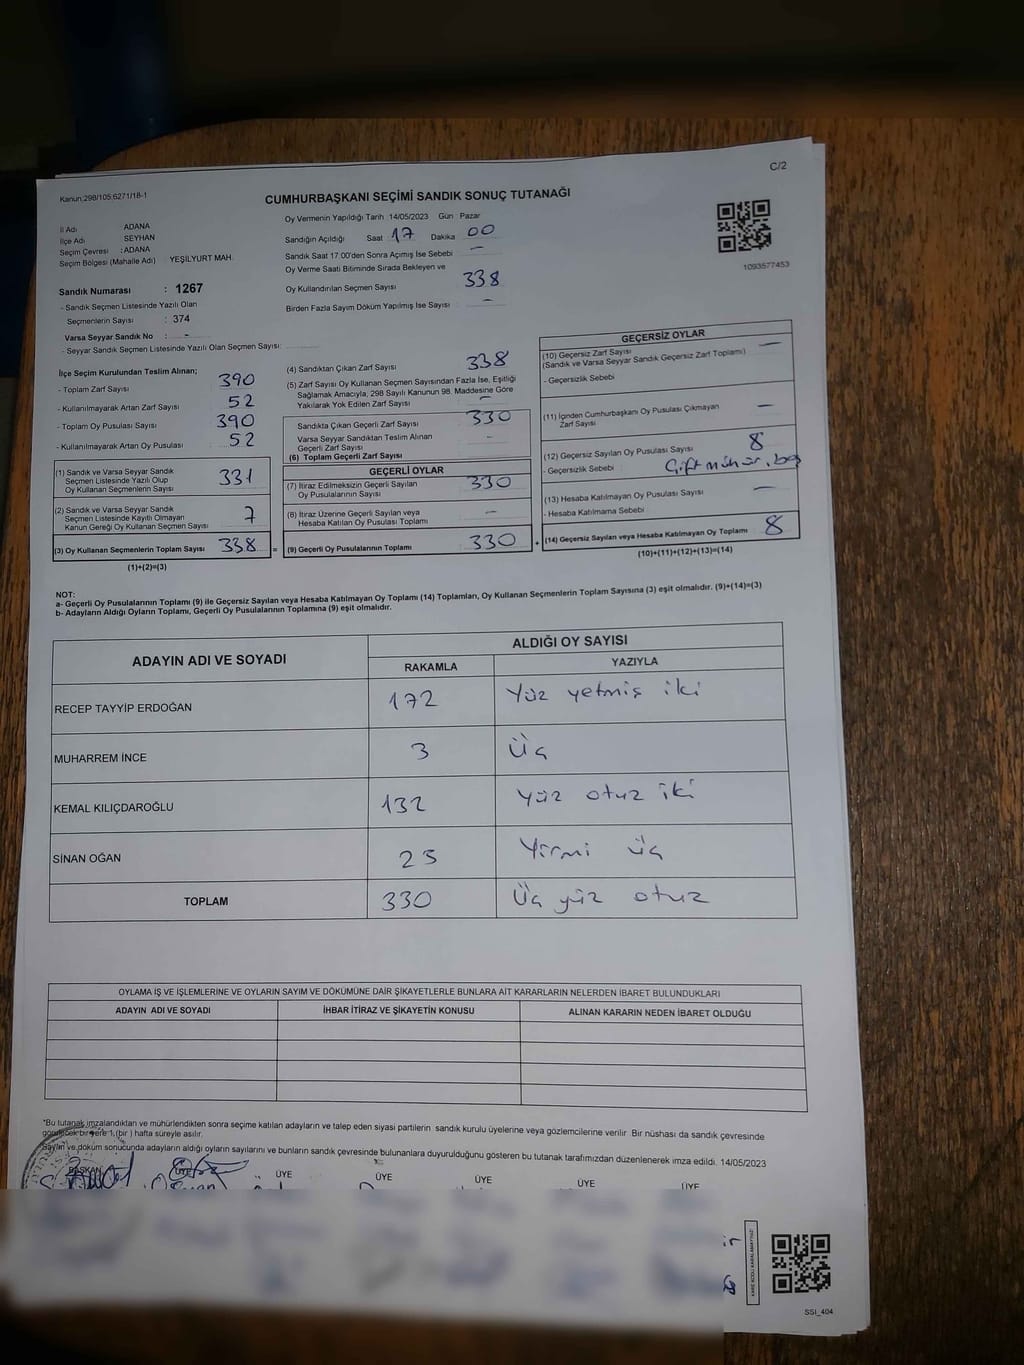 C/2
Kanun;298/105;6271/18-1
CUMHURBAŞKANI SEÇİMİ SANDIK SONUÇ TUTANAĞI
İl Adı ADANA
İlçe Adı SEYHAN
Seçim Çevresi : ADANA
Seçim Bölgesi (Mahalle Adı) : YEŞİLYURT MAH.
Sandık Numarası : 1267
- Sandık Seçmen Listesinde Yazılı Olan
Seçmenlerin Sayısı : 374
Varsa Seyyar Sandık No : -
- Seyyar Sandık Seçmen Listesinde Yazılı Olan Seçmen Sayısı:
Oy Vermenin Yapıldığı Tarih 14/05/2023 Gün Pazar
Sandığın Açıldığı Saat 17 Dakika 00
Sandık Saat 17:00'den Sonra Açımış İse Sebebi —
Oy Verme Saati Bitiminde Sırada Bekleyen ve
Oy Kullandırılan Seçmen Sayısı 338
Birden Fazla Sayım Döküm Yapılmış İse Sayısı —
1093577453
İlçe Seçim Kurulundan Teslim Alınan;
- Toplam Zarf Sayısı 390
- Kullanılmayarak Artan Zarf Sayısı 52
- Toplam Oy Pusulası Sayısı 390
- Kullanılmayarak Artan Oy Pusulası 52
(1) Sandık ve Varsa Seyyar Sandık
Seçmen Listesinde Yazılı Olup
Oy Kullanan Seçmenlerin Sayısı 331
(2) Sandık ve Varsa Seyyar Sandık
Seçmen Listesinde Kayıtlı Olmayan
Kanun Gereği Oy Kullanan Seçmen Sayısı 7
(3) Oy Kullanan Seçmenlerin Toplam Sayısı 338 =
(1)+(2)=(3)
(4) Sandıktan Çıkan Zarf Sayısı 338
(5) Zarf Sayısı Oy Kullanan Seçmen Sayısından Fazla İse, Eşitliği
Sağlamak Amacıyla, 298 Sayılı Kanunun 98. Maddesine Göre
Yakılarak Yok Edilen Zarf Sayısı —
Sandıkta Çıkan Geçerli Zarf Sayısı 330
Varsa Seyyar Sandıktan Teslim Alınan
Geçerli Zarf Sayısı -
(6) Toplam Geçerli Zarf Sayısı
GEÇERLİ OYLAR
(7) İtiraz Edilmeksizin Geçerli Sayılan
Oy Pusulalarının Sayısı 330
(8) İtiraz Üzerine Geçerli Sayılan veya
Hesaba Katılan Oy Pusulası Toplamı —
(9) Geçerli Oy Pusulalarının Toplamı 330 +
GEÇERSİZ OYLAR
(10) Geçersiz Zarf Sayısı —
(Sandık ve Varsa Seyyar Sandık Geçersiz Zarf Toplamı)
- Geçersizlik Sebebi
(11) İçinden Cumhurbaşkanı Oy Pusulası Çıkmayan
Zarf Sayısı —
(12) Geçersiz Sayılan Oy Pusulası Sayısı 8
- Geçersizlik Sebebi : Çift mühür, boş
(13) Hesaba Katılmayan Oy Pusulası Sayısı —
- Hesaba Katılmama Sebebi
(14) Geçersiz Sayılan veya Hesaba Katılmayan Oy Toplamı 8
(10)+(11)+(12)+(13)=(14)
NOT:
a- Geçerli Oy Pusulalarının Toplamı (9) ile Geçersiz Sayılan veya Hesaba Katılmayan Oy Toplamı (14) Toplamları, Oy Kullanan Seçmenlerin Toplam Sayısına (3) eşit olmalıdır. (9)+(14)=(3)
b- Adayların Aldığı Oyların Toplamı, Geçerli Oy Pusulalarının Toplamına (9) eşit olmalıdır.
ADAYIN ADI VE SOYADI ALDIĞI OY SAYISI
RAKAMLA YAZIYLA
RECEP TAYYİP ERDOĞAN 172 Yüz yetmiş iki
MUHARREM İNCE 3 Üç
KEMAL KILIÇDAROĞLU 132 Yüz otuz iki
SİNAN OĞAN 23 Yirmi üç
TOPLAM 330 Üç yüz otuz
OYLAMA İŞ VE İŞLEMLERİNE VE OYLARIN SAYIM VE DÖKÜMÜNE DAİR ŞİKAYETLERLE BUNLARA AİT KARARLARIN NELERDEN İBARET BULUNDUKLARI
ADAYIN ADI VE SOYADI İHBAR İTİRAZ VE ŞİKAYETİN KONUSU ALINAN KARARIN NEDEN İBARET OLDUĞU
*Bu tutanak imzalandıktan ve mühürlendikten sonra seçime katılan adayların ve talep eden siyasi partilerin sandık kurulu üyelerine veya gözlemcilerine verilir. Bir nüshası da sandık çevresinde
görülecek bir yere 1 (bir) hafta süreyle asılır.
Sayım ve döküm sonucunda adayların aldığı oyların sayılarını ve bunların sandık çevresinde bulunanlara duyurulduğunu gösteren bu tutanak tarafımızdan düzenlenerek imza edildi. 14/05/2023
BAŞKAN ÜYE ÜYE ÜYE ÜYE ÜYE ÜYE
KARE KODU KARALAMAYINIZ!
SSI_404